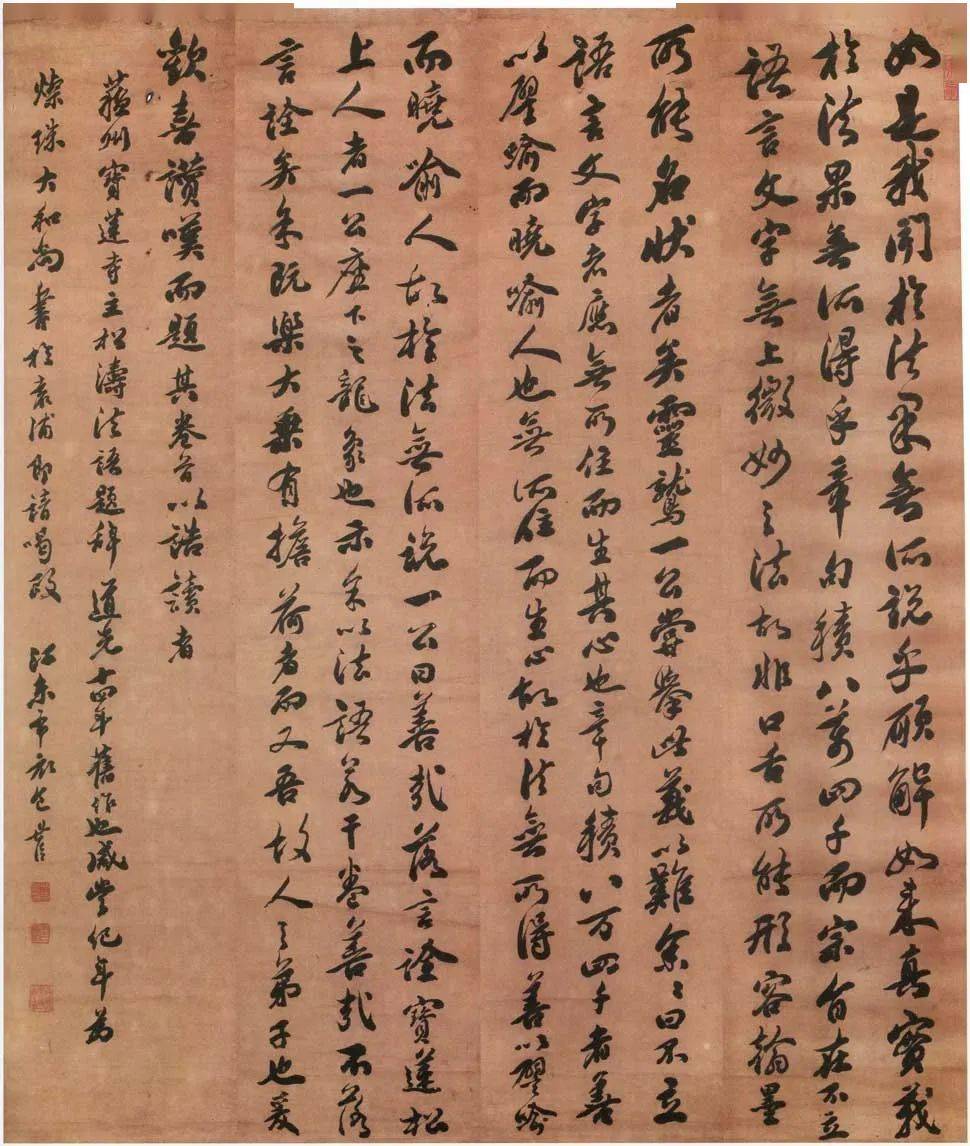 如是我聞於法果無所說乎願解如來真實義
於法果無所得乎章句積八萬四千而宗旨在不立
語言文字無上微妙之法故非口舌所能形容翰墨
所能名狀者矣靈鷲一公嘗舉此義以難余余曰不立
語言文字者應無所住而生其心也章句積八万四千者善
以譬喻而曉喻人也無所住而生心故於法無所得善以譬喻
而曉喻人故於法無所說一公曰善哉落言詮寶蓮松
上人者一公座下之龍象也示余以法語若干卷善哉不落
言詮矣余既樂大乘有擔荷者而又吾故人之弟子也爰
歡喜讚嘆而題其卷首以諗讀者
蘇州寶蓮寺主松濤法語題辭 道光十四年舊作也咸豐紀年為
燦珠大和尚書於袁浦即請喝政 江東布衣包世臣